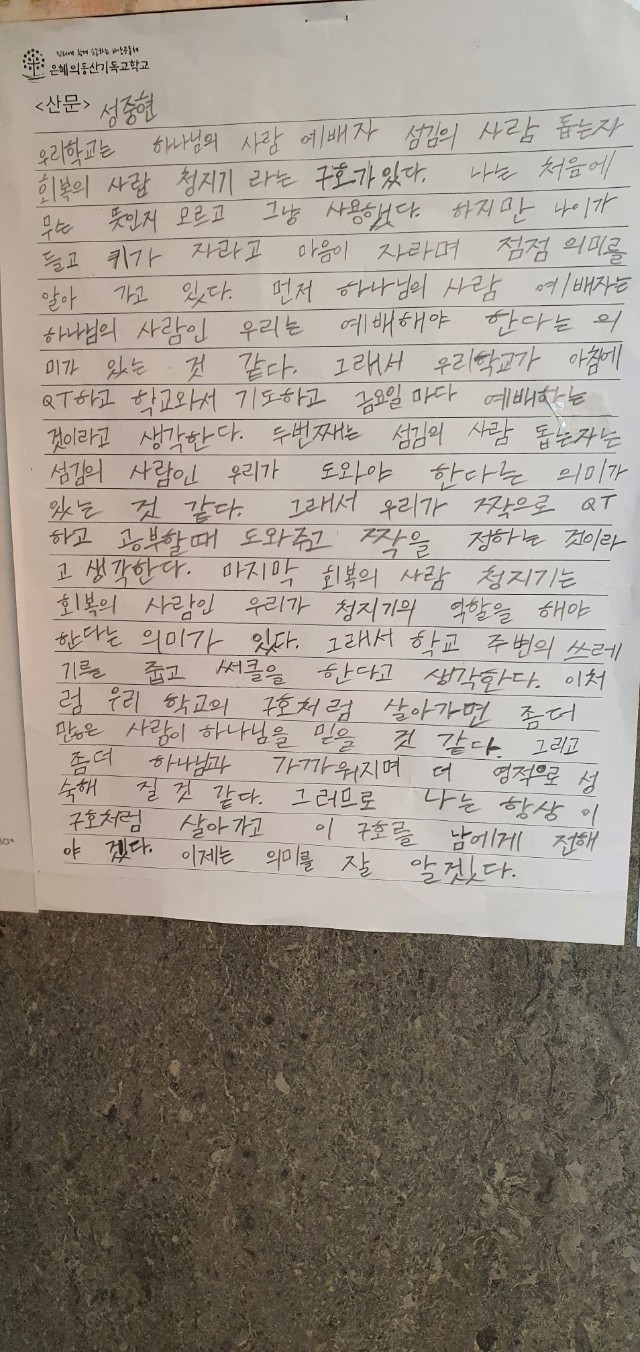 은혜의동산기독교학교
<산문> 성중현
우리학교는 하나님의 사람 예배자 섬김의 사람 돕는자
회복의 사람 청지기 라는 구호가 있다. 나는 처음에
무슨 뜻인지 모르고 그냥 사용했다. 하지만 나이가
들고 키가 자라고 마음이 자라며 점점 의미를
알아 가고 있다. 먼저 하나님의 사람 예배자는
하나님의 사람인 우리는 예배해야 한다는 의
미가 있는 것 같다. 그래서 우리학교가 아침에
QT하고 학교와서 기도하고 금요일 마다 예배하는
것이라고 생각한다. 두번째는 섬김의 사람 돕는자는
섬김의 사람인 우리가 도와야 한다는 의미가
있는 것 같다. 그래서 우리가 짝으로 QT
하고 공부할때 도와주고 짝을 정하는 것이라
고 생각한다. 마지막 회복의 사람 청지기는
회복의 사람인 우리가 청지기의 역할을 해야
한다는 의미가 있다. 그래서 학교 주변의 쓰레
기를 줍고 써클을 한다고 생각한다. 이처
럼 우리 학교의 구호처럼 살아가면 좀더
많은 사람이 하나님을 믿을 것 같다. 그리고
좀더 하나님과 가까워지며 더 영적으로 성
숙해 질 것 같다. 그러므로 나는 항상 이
구호처럼 살아가고 이 구호를 남에게 전해
야 겠다. 이제는 의미를 잘 알겠다.